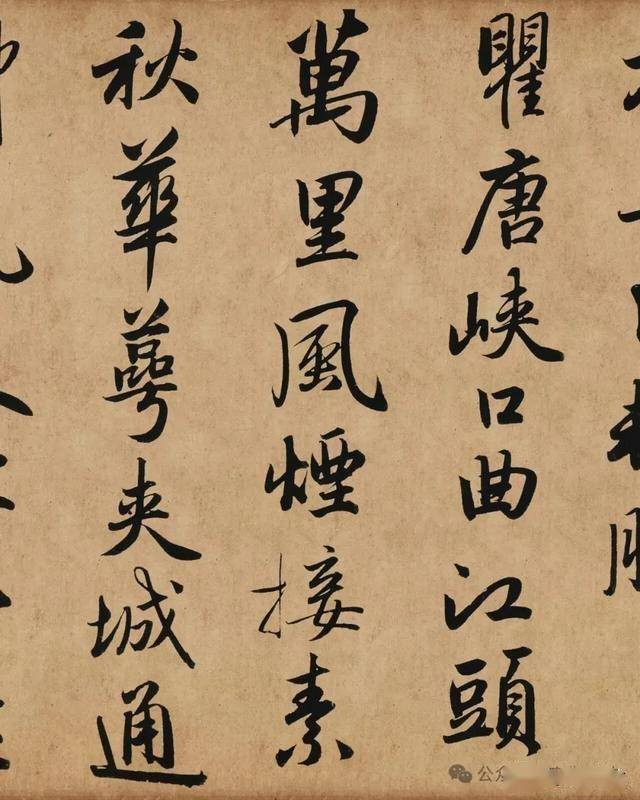 瞿唐峽口曲江頭
萬里風煙接素
秋華萼夾城通
公众